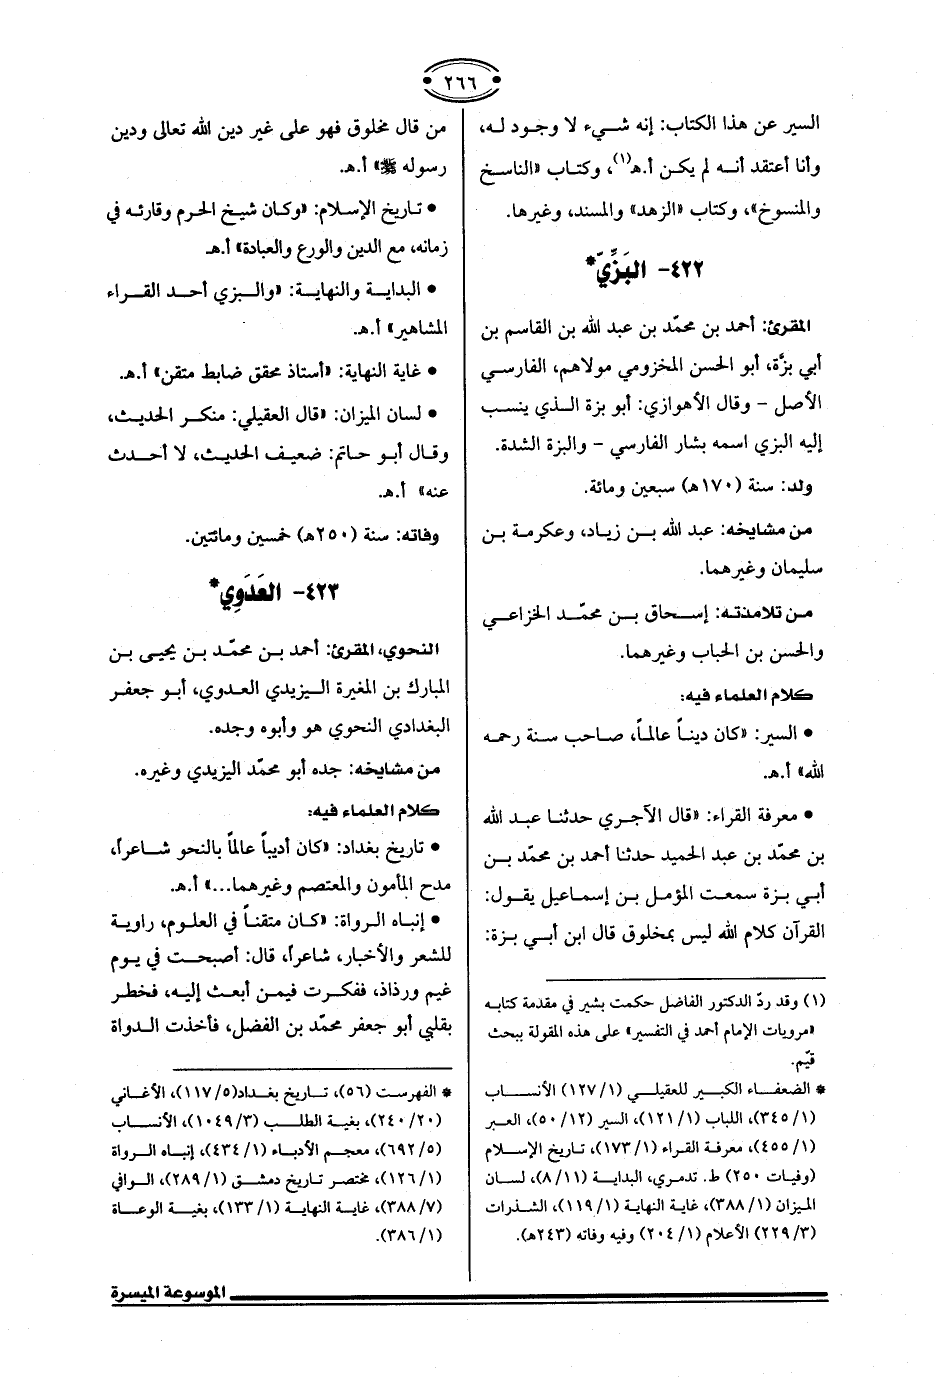 ٢٦٦
السير عن هذا الكتاب: إنه شيء لا وجود له،
وأنا أعتقد أنه لم يكن أ.هـ(١)، وكتاب «الناسخ
والمنسوخ»، وكتاب «الزهد» والمسند، وغيرها.
٤٢٢- البَزِّيّ*
المقرئ: أحمد بن محمّد بن عبد الله بن القاسم بن
أبي بزَّة، أبو الحسن المخزومي مولاهم، الفارسي
الأصل - وقال الأهوازي: أبو بزة الذي ينسب
إليه البزي اسمه بشار الفارسي - والبزة الشدة.
ولد: سنة (١٧٠هـ) سبعين ومائة.
من مشايخه: عبد الله بن زياد، وعكرمة بن
سليمان وغيرهما.
من تلامذته: إسحاق بن محمّد الخزاعي
والحسن بن الحباب وغيرهما.
كلام العلماء فيه:
• السير: «كان ديناً عالماً، صاحب سنة رحمه
الله» أ.هـ.
• معرفة القراء: «قال الآجري حدثنا عبد الله
بن محمّد بن عبد الحميد حدثنا أحمد بن محمّد بن
أبي بزة سمعت المؤمل بن إسماعيل يقول:
القرآن كلام الله ليس بمخلوق قال ابن أبي بزة:
(١) وقد ردّ الدكتور الفاضل حكمت بشير في مقدمة كتابه
«مرويات الإمام أحمد في التفسير» على هذه المقولة ببحث
قيّم.
* الضعفاء الكبير للعقيلي (١/ ١٢٧) الأنساب
(١/ ٣٤٥)، اللباب (١/ ١٢١)، السير (١٢/ ٥٠)، العبر
(١/ ٤٥٥)، معرفة القراء (١/ ١٧٣)، تاريخ الإسلام
(وفيات ٢٥٠) ط. تدمري، البداية (١١/ ٨)، لسان
الميزان (١/ ٣٨٨)، غاية النهاية (١/ ١١٩)، الشذرات
(٣/ ٢٢٩) الأعلام (١/ ٢٠٤) وفيه وفاته (٢٤٣هـ).
من قال مخلوق فهو على غير دين الله تعالى ودين
رسوله ﷺ» أ.هـ.
• تاريخ الإسلام: «وكان شيخ الحرم وقارئه في
زمانه، مع الدين والورع والعبادة» أ.هـ
• البداية والنهاية: «والبزي أحد القراء
المشاهير» أ.هـ.
• غاية النهاية: «أستاذ محقق ضابط متقن» أ.هـ.
• لسان الميزان: «قال العقيلي: منكر الحديث،
وقال أبو حاتم: ضعيف الحديث، لا أحدث
عنه» أ.هـ.
وفاته: سنة (٢٥٠هـ) خمسين ومائتين.
٤٢٣- العَدَوِي*
النحوي، المقرئ: أحمد بن محمّد بن يحيى بن
المبارك بن المغيرة اليزيدي العدوي، أبو جعفر
البغدادي النحوي هو وأبوه وجده.
من مشايخه: جده أبو محمّد اليزيدي وغيره.
كلام العلماء فيه:
• تاريخ بغداد: «كان أديباً عالماً بالنحو شاعراً،
مدح المأمون والمعتصم وغيرهما...» أ.هـ.
• إنباه الرواة: «كان متقناً في العلوم، راوية
للشعر والأخبار، شاعراً، قال: أصبحت في يوم
غيم ورذاذ، ففكرت فيمن أبعث إليه، فخطر
بقلبي أبو جعفر محمّد بن الفضل، فأخذت الدواة
* الفهرست (٥٦)، تاريخ بغداد(٥/ ١١٧)، الأغاني
(٢٠/ ٢٤٠)، بغية الطلب (٣/ ١٠٤٩)، الأنساب
(٥/ ٦٩٢)، معجم الأدباء (١/ ٤٣٤)، إنباه الرواة
(١/ ١٢٦)، مختصر تاريخ دمشق (١/ ٢٨٩)، الوافي
(٧/ ٣٨٨)، غاية النهاية (١/ ١٣٣)، بغية الوعاة
(١/ ٣٨٦).
الموسوعة الميسرة